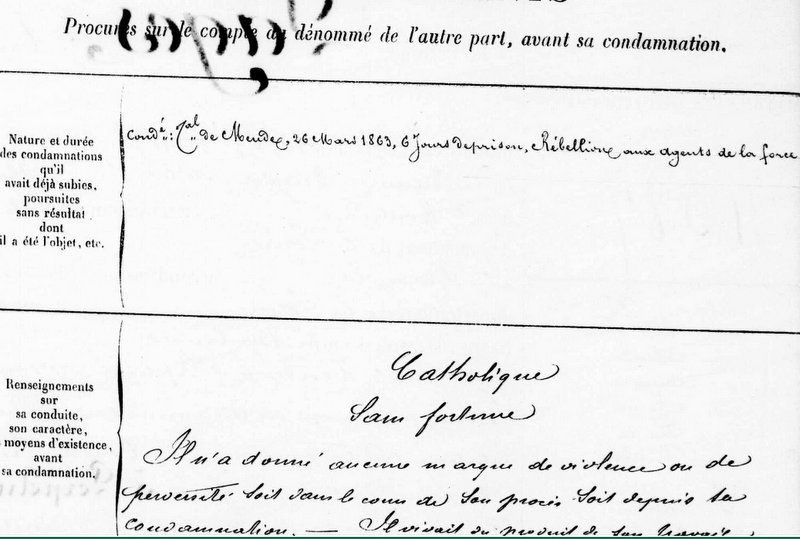 Procurés sur le compte du dénommé de l'autre part, avant sa condamnation.
Nature et durée
des condamnations
qu'il
avait déjà subies,
poursuites
sans résultat
dont
il a été l'objet, etc.
Condé: Tal de Mende, 26 Mars 1863, 6 Jours de prison, Rébellion aux agents de la force
Renseignements
sur
sa conduite,
son caractère,
moyens d'existence,
avant
sa condamnation.
Catholique
Sans fortune
Il n'a donné aucune marque de violence ou de
perversité soit dans le cours de son procès soit depuis sa
condamnation. — Il vivait du produit de son travail,